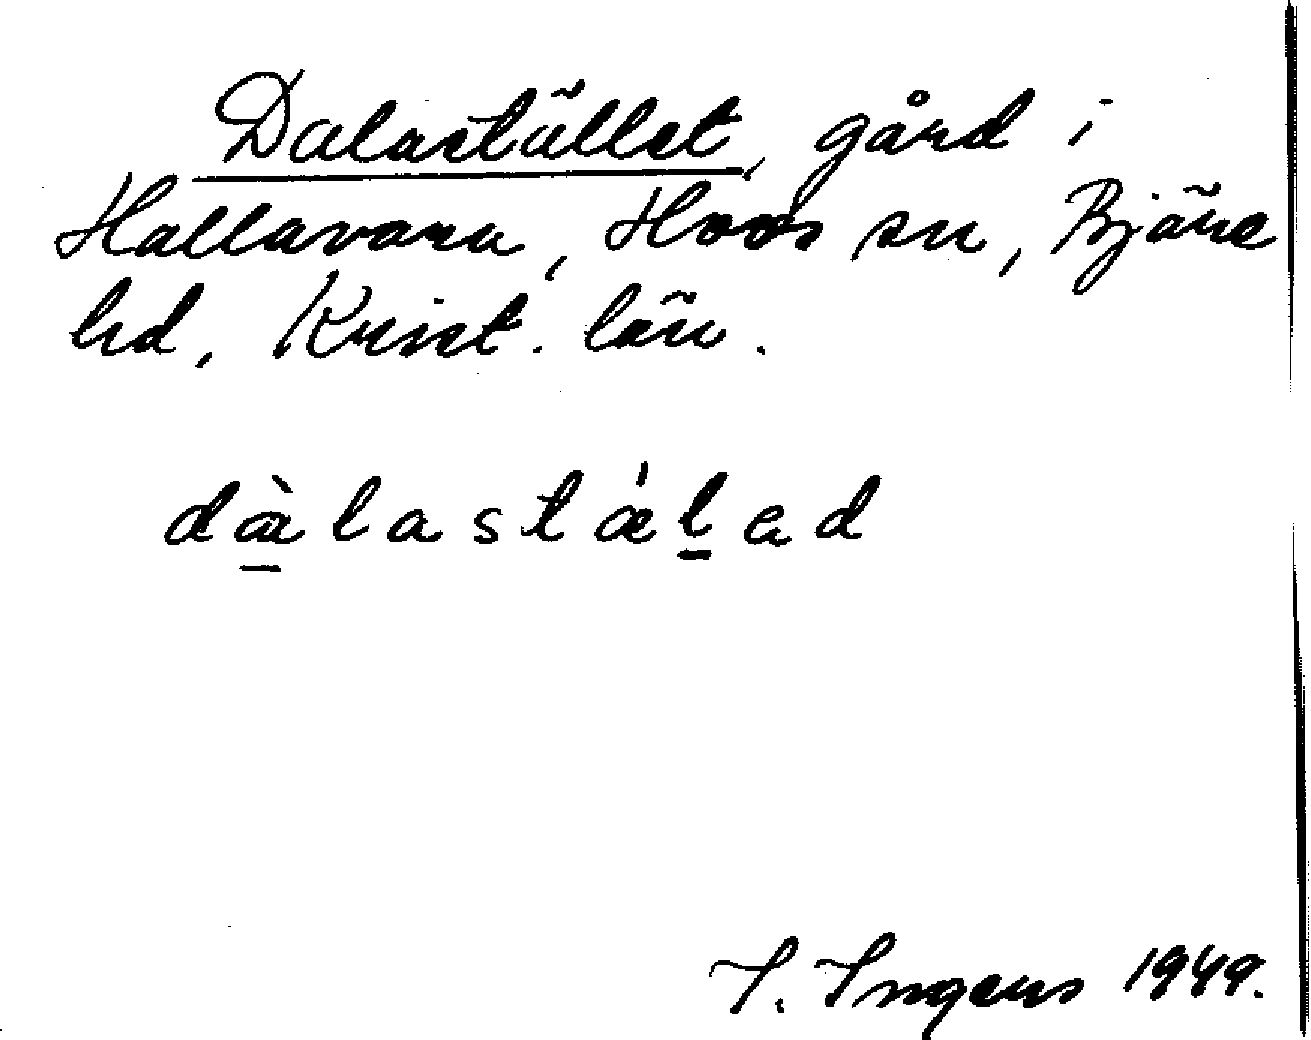 Dalastället, gård i
Hallavara, Hovs sn, Bjäre
hd, Krist. län.
dàlastǽled
I. Ingers 1949.